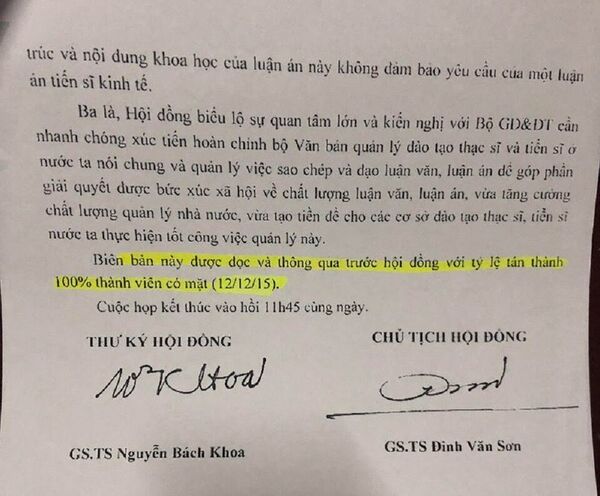 trúc và nội dung khoa học của luận án này không đảm bảo yêu cầu của một luận
án tiến sĩ kinh tế.
Ba là, Hội đồng biểu lộ sự quan tâm lớn và kiến nghị với Bộ GD&ĐT cần
nhanh chóng xúc tiến hoàn chỉnh bộ Văn bản quản lý đào tạo thạc sĩ và tiến sĩ ở
nước ta nói chung và quản lý việc sao chép và đạo luận văn, luận án để góp phần
giải quyết được bức xúc xã hội về chất lượng luận văn, luận án, vừa tăng cường
chất lượng quản lý nhà nước, vừa tạo tiền đề cho các cơ sở đào tạo thạc sĩ, tiến sĩ
nước ta thực hiện tốt công việc quản lý này.
Biên bản này được đọc và thông qua trước hội đồng với tỷ lệ tán thành
100% thành viên có mặt (12/12/15).
Cuộc họp kết thúc vào hồi 11h45 cùng ngày.
THƯ KÝ HỘI ĐỒNG
CHỦ TỊCH HỘI ĐỒNG
GS.TS Nguyễn Bách Khoa
GS.TS Đinh Văn Sơn